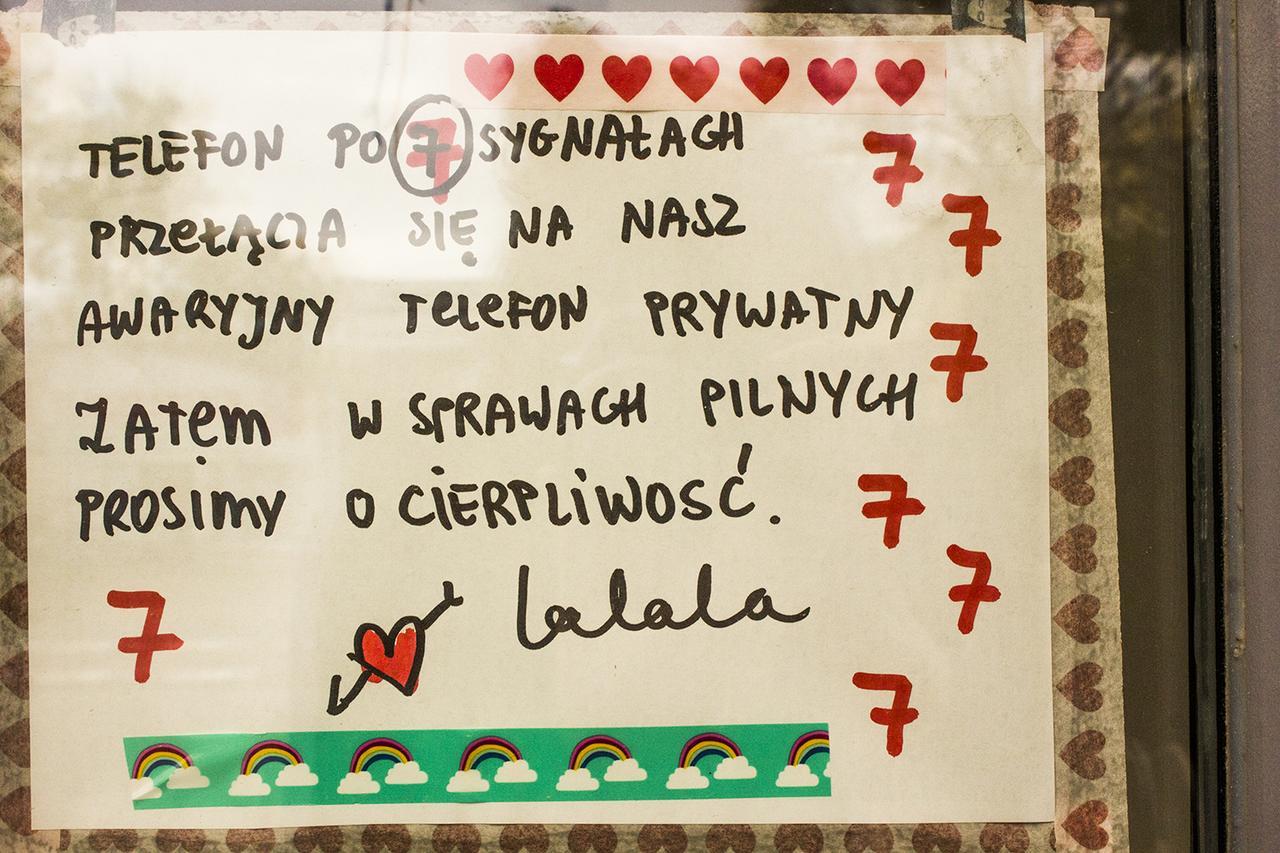 TELEFON PO 7 SYGNAŁACH 7
PRZEŁĄCZA SIĘ NA NASZ 7
AWARYJNY TELEFON PRYWATNY 7
ZATĘM W SPRAWACH PILNYCH
PROSIMY O CIERPLIWOŚĆ. 7
7
7 lalala
7